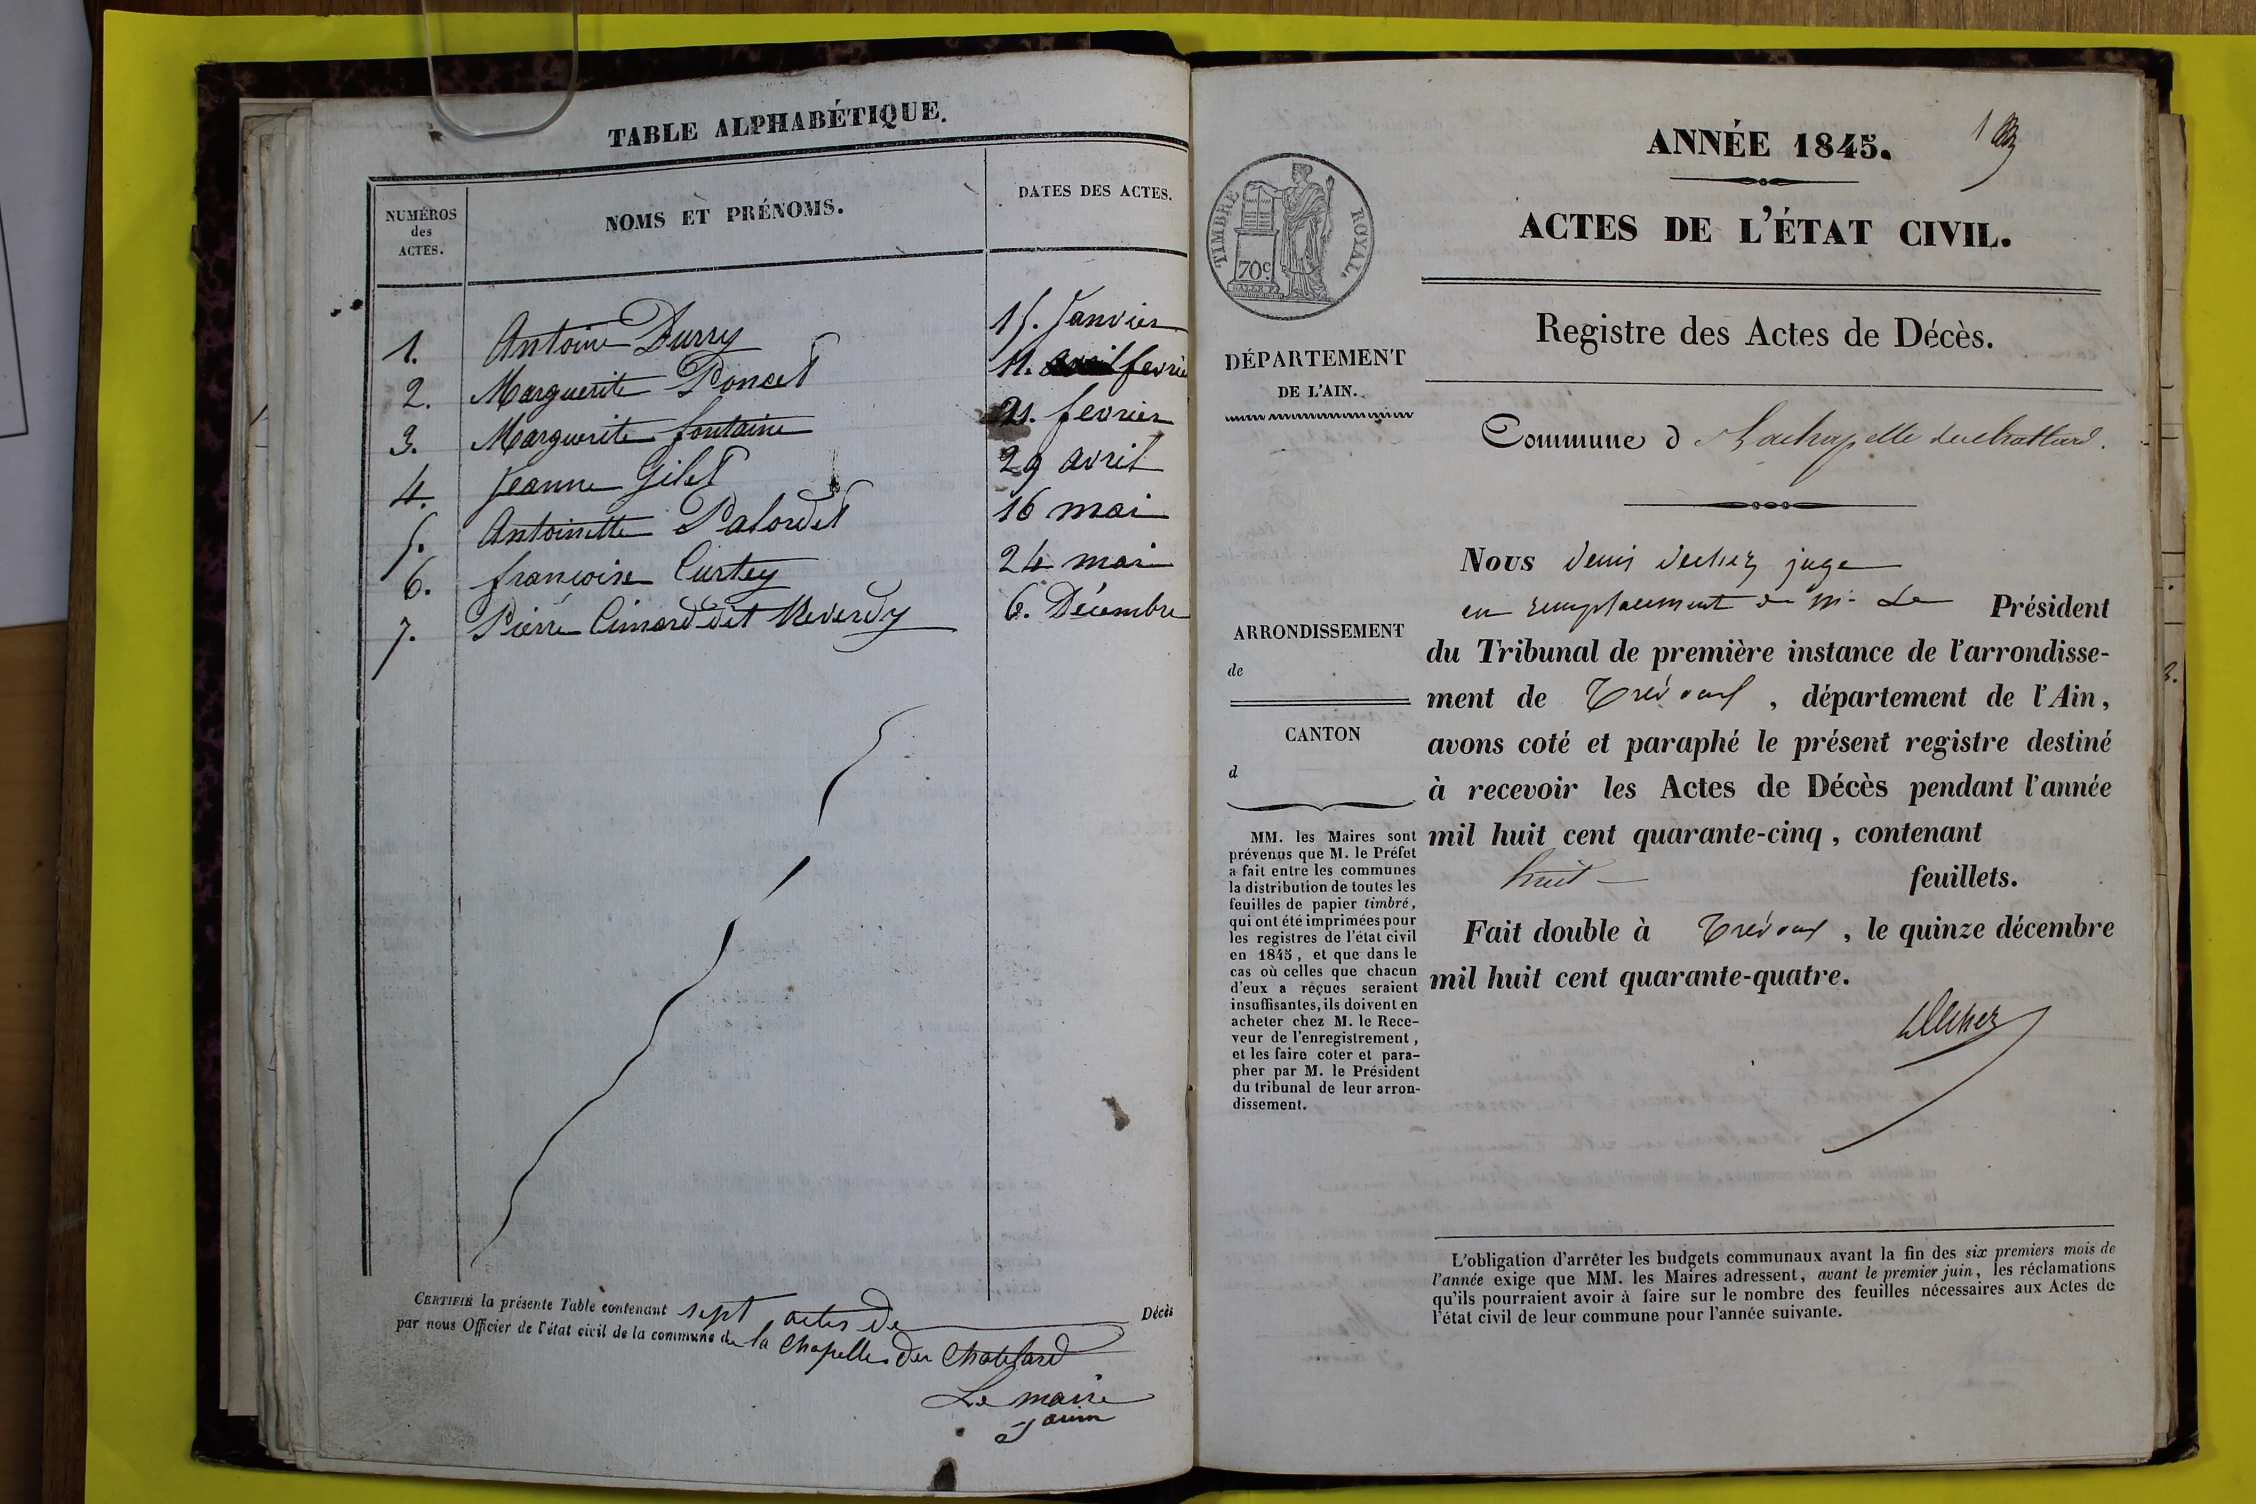 TABLE ALPHABÉTIQUE.
NUMÉROS
des
ACTES.
NOMS ET PRÉNOMS.
DATES DES ACTES.
1. Antoine Durry 15. Janvier
2. Marguerite Poncet 11. fevrier
3. Marguerite fontaine 21. fevrier
4. Jeanne Gilet 29 avril
5. Antoinette 16 mai
6. françoise Curtey 24 mai
7. Pierre dit Reverdy 6. Décembre
CERTIFIÉ la présente Table contenant sept actes de Décès
par nous Officier de l'état civil de la commune de la Chapelle du Chatelard
Le maire
TIMBRE ROYAL.
70c.
DÉPARTEMENT
DE L'AIN.
ARRONDISSEMENT
de
CANTON
d
MM. les Maires sont
prévenus que M. le Préfet
a fait entre les communes
la distribution de toutes les
feuilles de papier timbré,
qui ont été imprimées pour
les registres de l'état civil
en 1845, et que dans le
cas où celles que chacun
d'eux a reçues seraient
insuffisantes, ils doivent en
acheter chez M. le Rece-
veur de l'enregistrement,
et les faire coter et para-
pher par M. le Président
du tribunal de leur arron-
dissement.
1
ANNÉE 1845.
ACTES DE L'ÉTAT CIVIL.
Registre des Actes de Décès.
Commune d Lachapelle du chatelard.
Nous denis dechez juge
en remplacement de M. Le Président
du Tribunal de première instance de l'arrondisse-
ment de Trévoux, département de l'Ain,
avons coté et paraphé le présent registre destiné
à recevoir les Actes de Décès pendant l'année
mil huit cent quarante-cinq, contenant
huit feuillets.
Fait double à Trévoux, le quinze décembre
mil huit cent quarante-quatre.
Dechez
L'obligation d'arrêter les budgets communaux avant la fin des six premiers mois de
l'année exige que MM. les Maires adressent, avant le premier juin, les réclamations
qu'ils pourraient avoir à faire sur le nombre des feuilles nécessaires aux Actes de
l'état civil de leur commune pour l'année suivante.